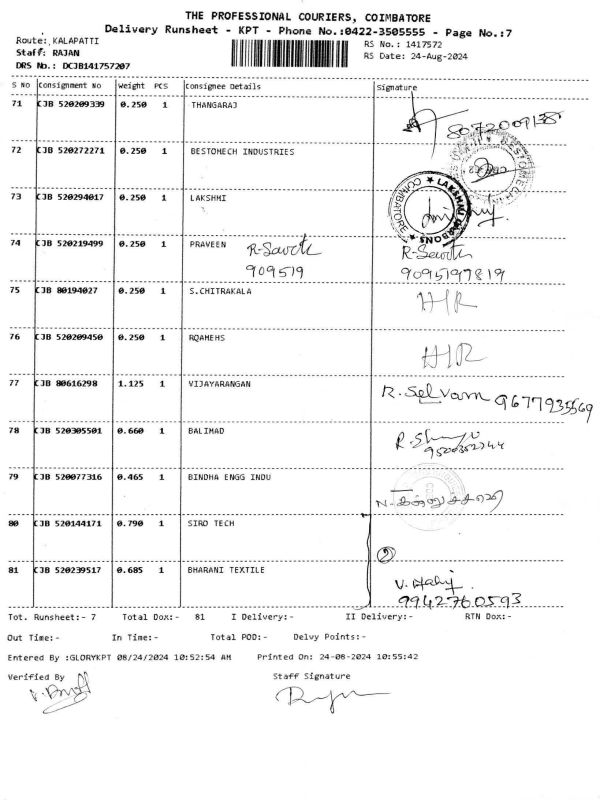 THE PROFESSIONAL COURIERS, COIMBATORE
Delivery Runsheet - KPT - Phone No.:0422-3505555 - Page No.:7
Route: KALAPATTI RS No.: 1417572
Staff: RAJAN RS Date: 24-Aug-2024
DRS No.: DCJB141757207
S No Consignment No Weight PCS Consignee Details Signature
71 CJB 520209339 0.250 1 THANGARAJ
72 CJB 520272271 0.250 1 BESTOMECH INDUSTRIES
73 CJB 520294017 0.250 1 LAKSHMI
COIMBATORE ★ LAKSHMI CARBONS ★
74 CJB 520219499 0.250 1 PRAVEEN
909519 9095197819
75 CJB 80194027 0.250 1 S.CHITRAKALA H/R
76 CJB 520209450 0.250 1 RQAMEHS H/R
77 CJB 80616298 1.125 1 VIJAYARANGAN R. Selvam 9677935569
78 CJB 520305501 0.660 1 BALIMAD
79 CJB 520077316 0.465 1 BINDHA ENGG INDU
80 CJB 520144171 0.790 1 SIRO TECH 2
81 CJB 520239517 0.685 1 BHARANI TEXTILE
9942760593
Tot. Runsheet:- 7 Total Dox:- 81 I Delivery:- II Delivery:- RTN Dox:-
Out Time:- In Time:- Total POD:- Delvy Points:-
Entered By :GLORYKPT 08/24/2024 10:52:54 AM Printed On: 24-08-2024 10:55:42
Verified By Staff Signature